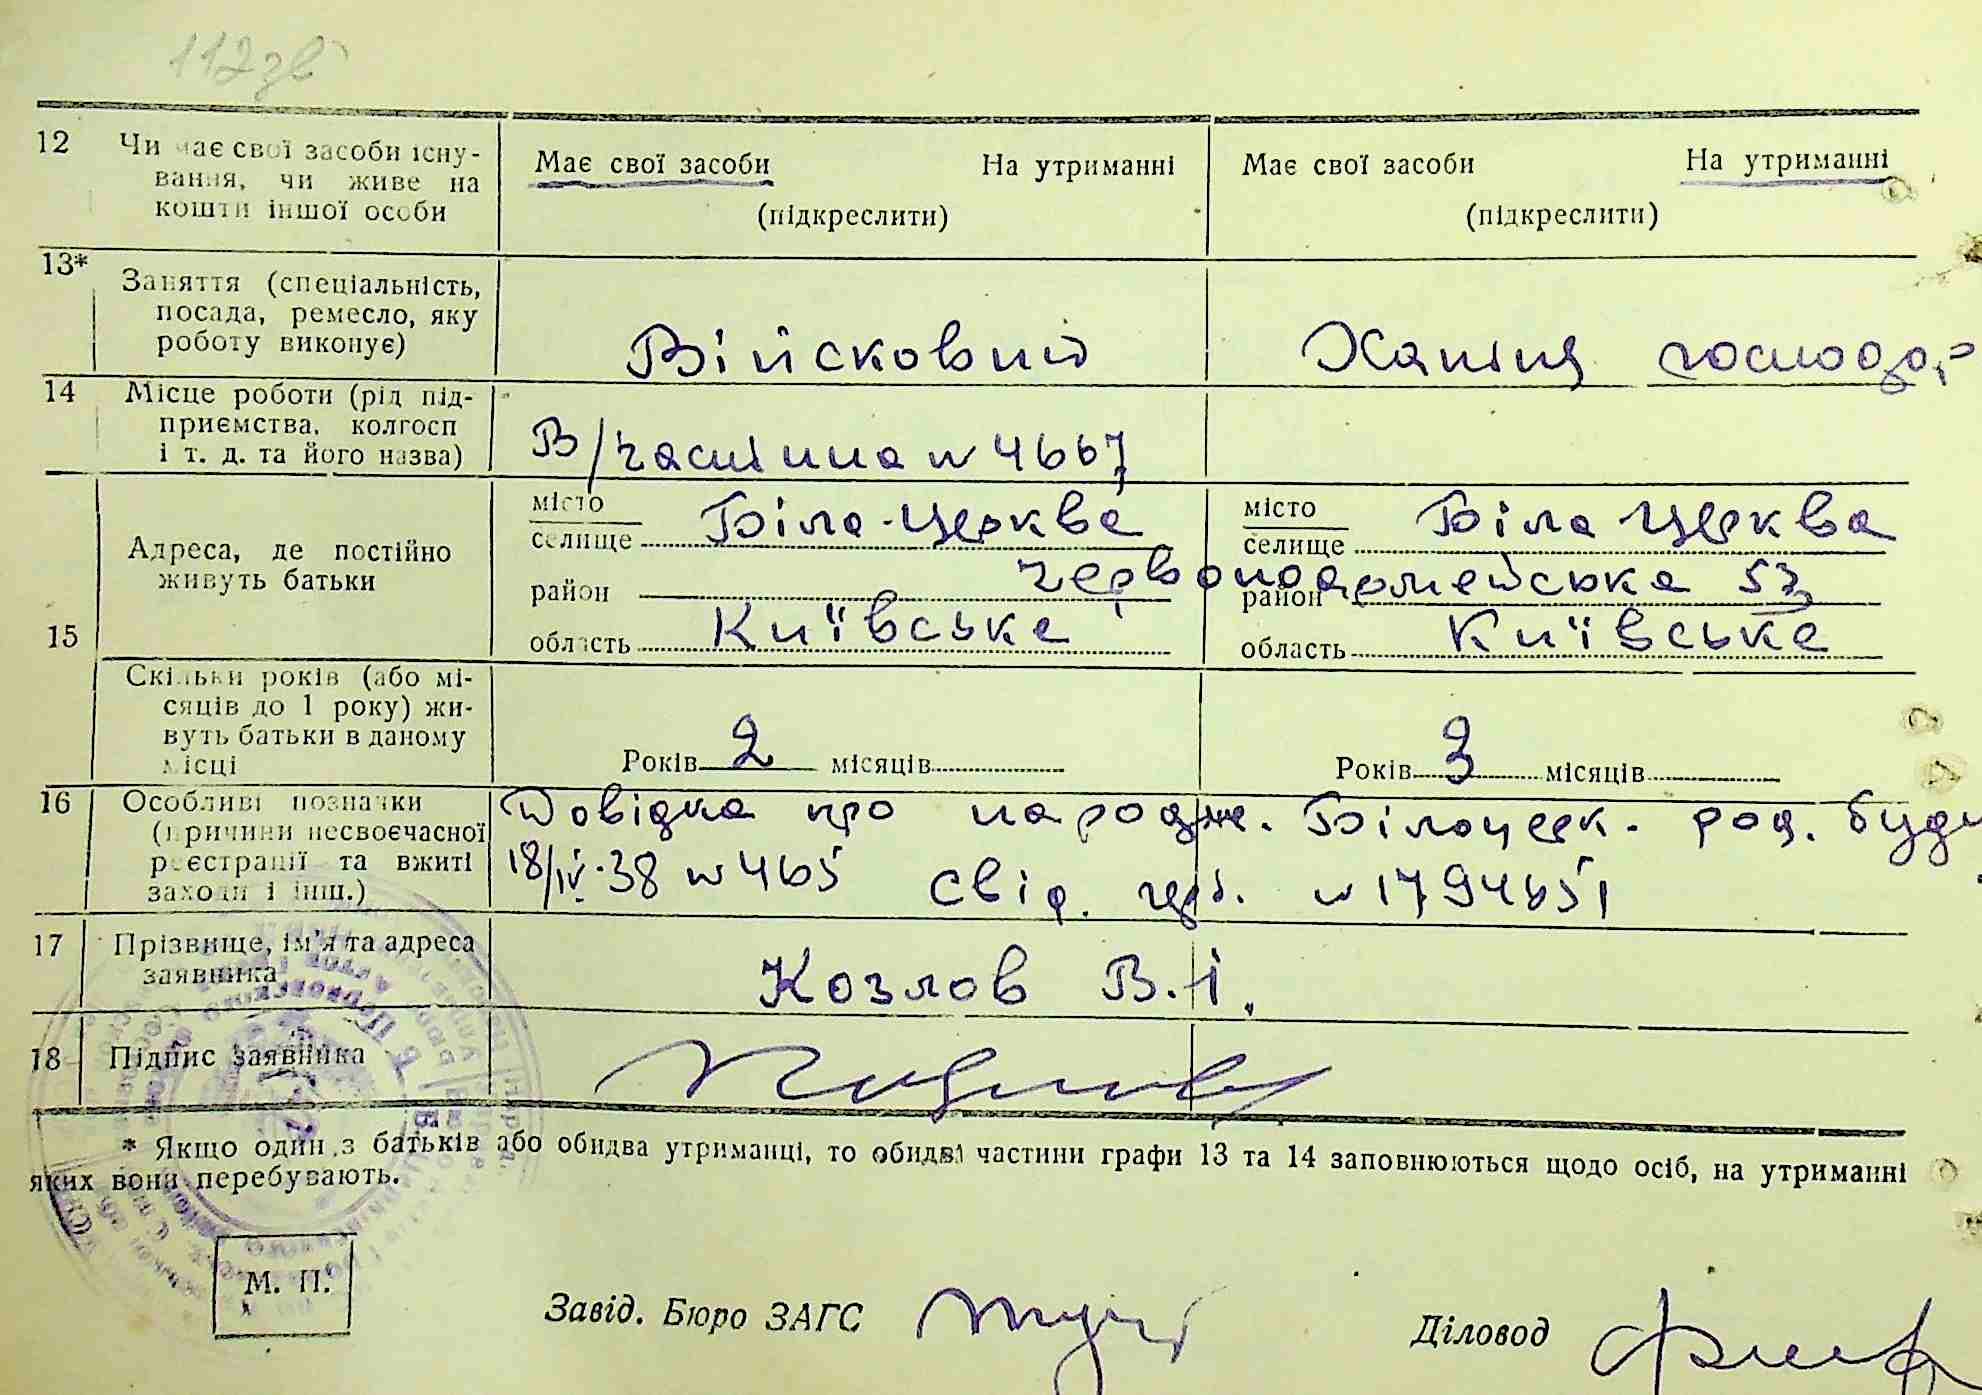 112зв
12 Чи має свої засоби існу-
вання, чи живе на
кошти іншої особи
Має свої засоби На утриманні
(підкреслити)
Має свої засоби На утриманні
(підкреслити)
13* Заняття (спеціальність,
посада, ремесло, яку
роботу виконує)
Військовий
Хатня господ.
14 Місце роботи (рід під-
приємства, колгосп
і т. д. та його назва)
В/частина №4667
15
Адреса, де постійно
живуть батьки
місто
селище Біла-Церква
район
область Київська
місто
селище Біла Церква
Червоноармейська 53
район
область Київська
Скільки років (або мі-
сяців до 1 року) жи-
вуть батьки в даному
місці
Років 2 місяців
Років 3 місяців
16 Особливі позначки
(причини несвоєчасної
реєстрації та вжиті
заходи і інш.)
Довідка про народже. Білоцерк. род. буди
18/IV-38 №465 свід. №1794651
17 Прізвище, ім'я та адреса
заявника
Козлов В.І.
18 Підпис заявника
* Якщо один з батьків або обидва утриманці, то обидві частини графи 13 та 14 заповнюються щодо осіб, на утриманні
яких вони перебувають.
М. П.
Завід. Бюро ЗАГС
Діловод